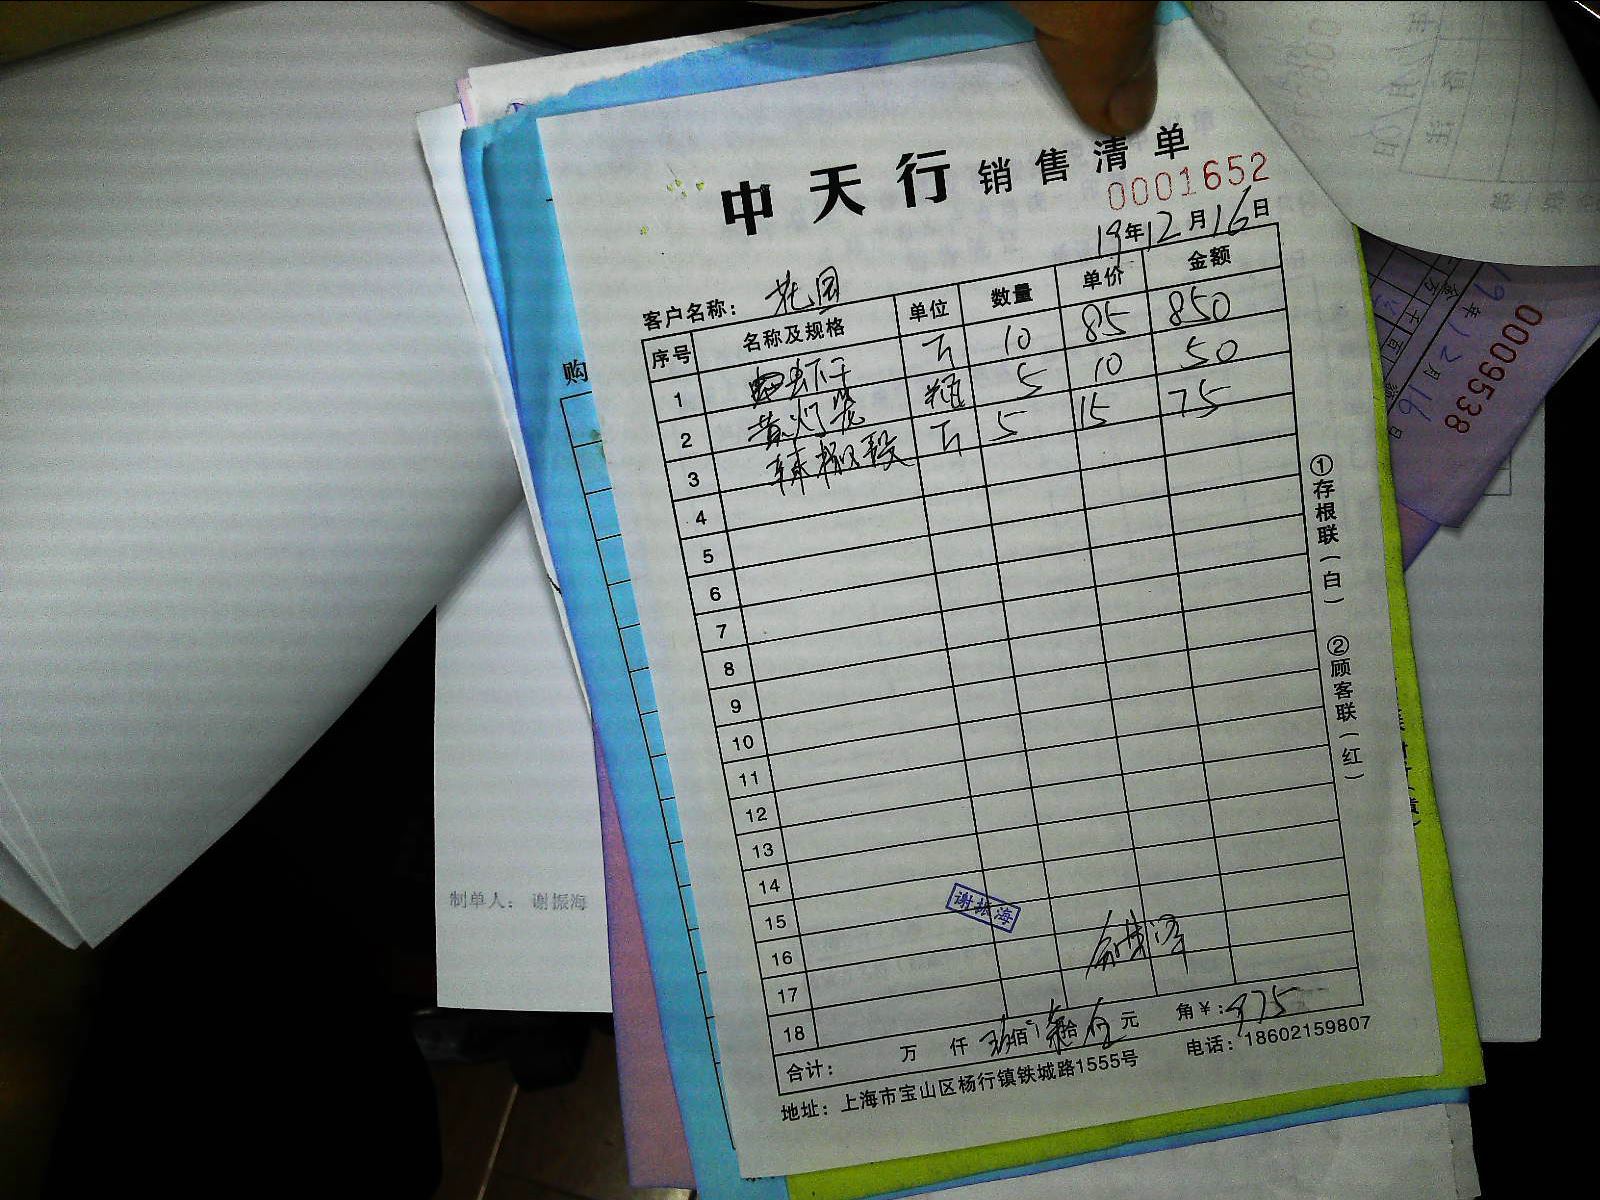 中天行 销售清单
0001652
19年12月16日
客户名称: 花园
序号 名称及规格 单位 数量 单价 金额
1 虾干 斤 10 85 850
2 黄灯笼 瓶 5 10 50
3 辣椒段 斤 5 15 75
4
5
6
7
8
9
10
11
12
13
14
15
16
17
18
谢振海
合计: 万 仟 玖佰 柒拾 伍元 角 ¥: 975
地址: 上海市宝山区杨行镇铁城路1555号 电话: 18602159807
①存根联(白) ②顾客联(红)
购
制单人: 谢振海
0009538
年12月16日